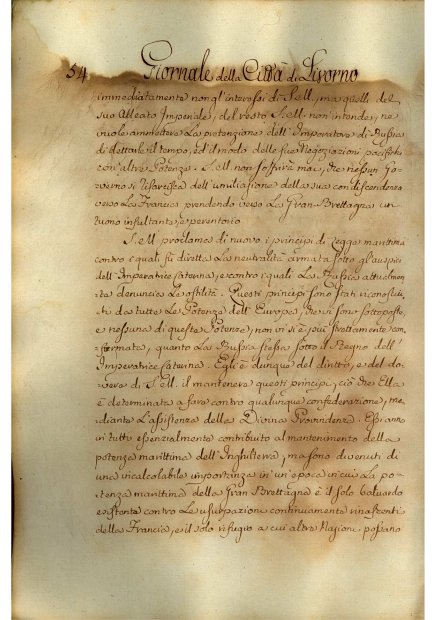 54 Giornale della Città di Livorno
immediatamente non gl'interessi di S. M., ma quelli del
suo Alleato Imperiale, del resto S. M. non intende, ne
vuole ammettere La pretenzione dell'Imperatore di Russia
di dettare il tempo, ed il modo delle sue Negoziazioni pacifiche
con altre Potenze. S. M. non soffrirà mai, che nessun Go-
verno si risarcisca dell'umiliazione della sua condiscendenza
verso La Francia prendendo verso La Gran Brettagna un
tuono insultante, e perentorio
S. M. proclama di nuovo i principj di Legge marittima
contro i quali fù diretta La neutralità armata sotto gl'auspicj
dell'Imperatrice Caterina, e contro i quali La Russia attualmen-
te denuncia Le ostilità. Questi principj sono stati riconosciu-
ti da tutte Le Potenze dell'Europa, che vi sono sottoposte,
e nessuna di queste Potenze, non vi si è più strettamente con-
formata, quanto La Russia stessa sotto il Regno dell'
Imperatrice Caterina. Egli è dunque del diritto, e del do-
vere di S. M. il mantenere questi principj, ciò che Ella
è determinata a fare contro qualunque confederazione, me-
diante L'assistenza della Divina Provvidenza. Essi anno
in tutti essenzialmente contribuito al mantenimento della
potenza marittima dell'Inghilterra, ma sono divenuti di
una incalcolabile importanza in un'epoca in cui La po-
tenza marittima della Gran Brettagna è il solo baluardo
esistente contro Le usurpazioni continuamente rinascenti
della Francia, e il solo rifugio a cui altre Nazioni possano